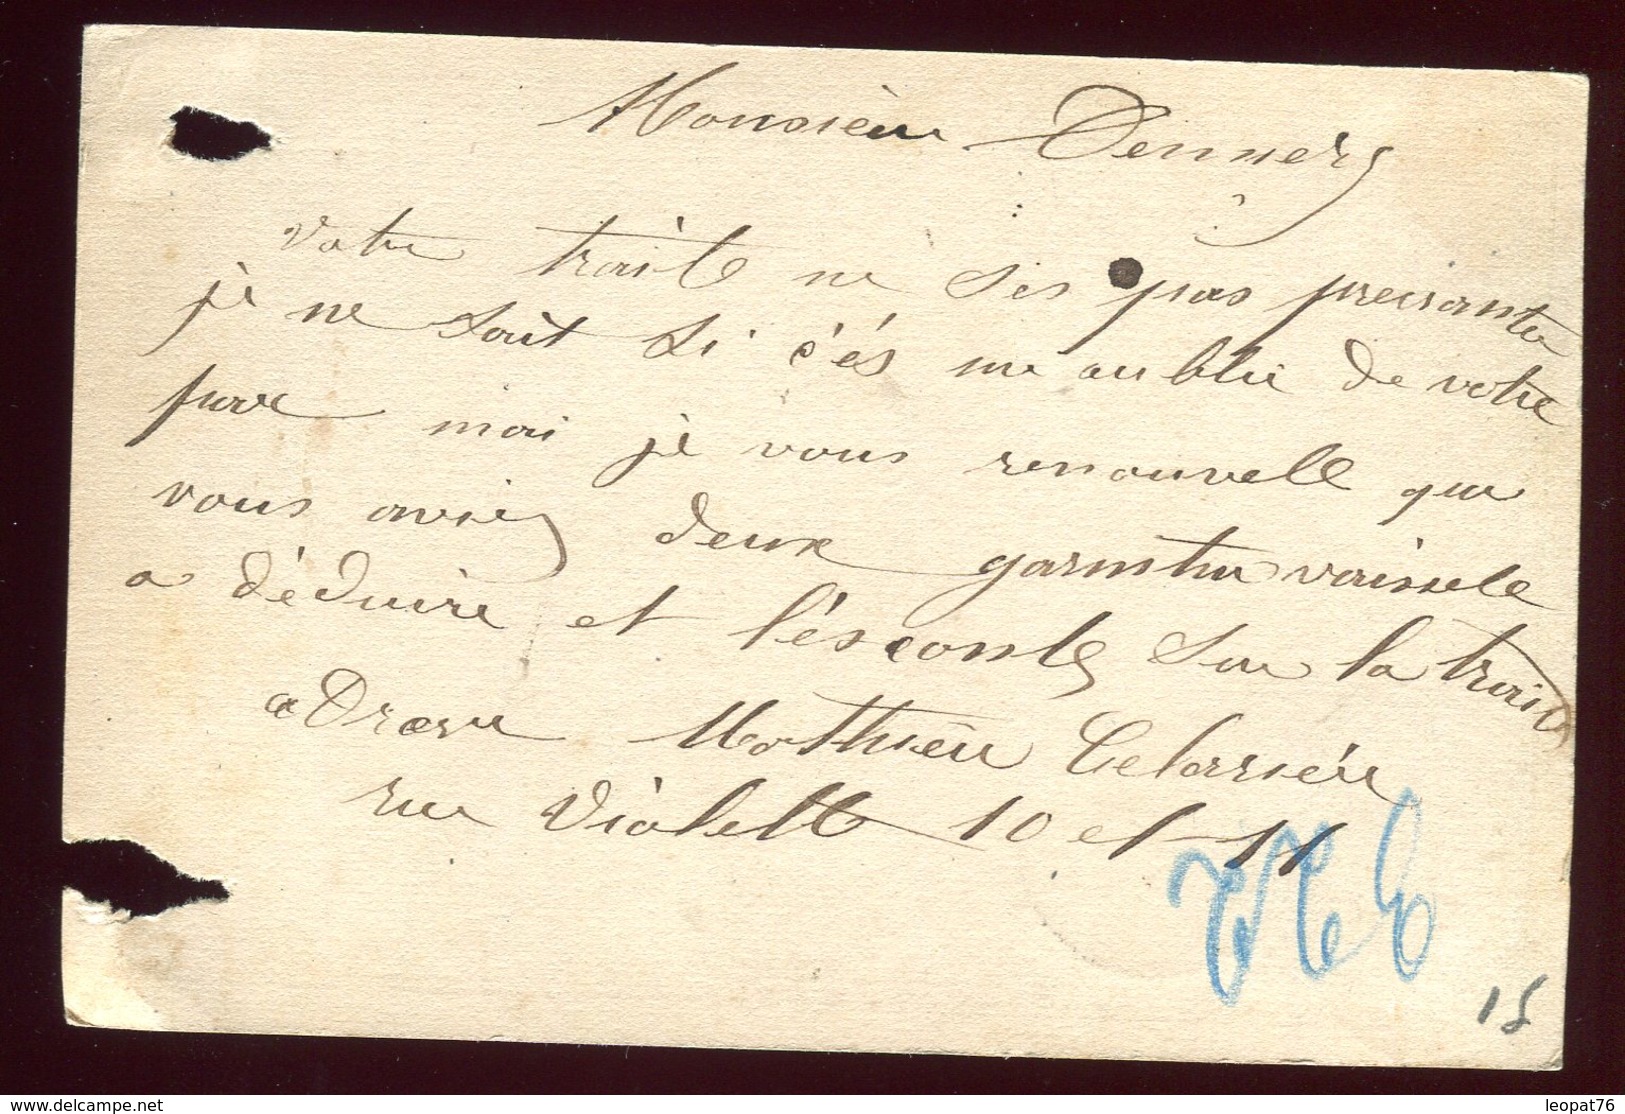 Monsieur Denners
votre traite ne ses pas presante
je ne sait si c'és un aublie de votre
par moi je vous renouvelle que
vous aviez deux garnitur vaissele
a déduire et l'éscomte sur la traite
adresse Mathieu
rue Violette 10 et 11
15
delcampe.net
leopat76